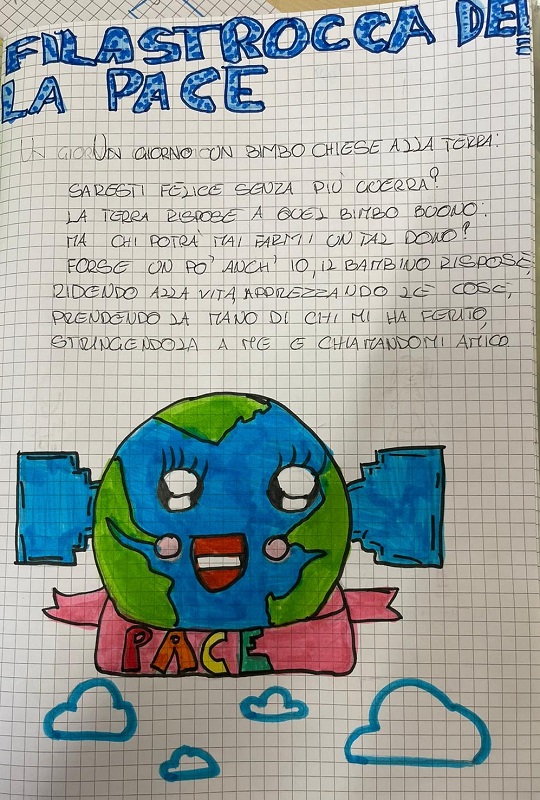 FILASTROCCA DEL
LA PACE
UN GIORNO UN BIMBO CHIESE ALLA TERRA:
SARESTI FELICE SENZA PIÙ GUERRA?
LA TERRA RISPOSE A QUEL BIMBO BUONO:
MA CHI POTRÀ MAI FARMI UN TAL DONO?
FORSE UN PO' ANCH'IO, IL BAMBINO RISPOSE,
RIDENDO ALLA VITA, APPREZZANDO LE COSE,
PRENDENDO LA MANO DI CHI MI HA FERITO,
STRINGENDOLA A ME E CHIAMANDOMI AMICO
PACE